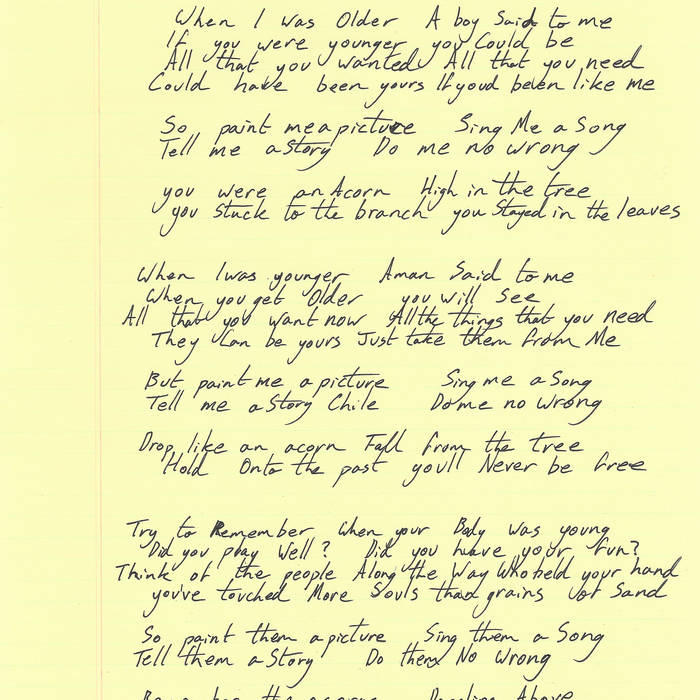 When I was Older A boy Said to me
If you were younger you Could be
All that you wanted All that you need
Could have been yours If youd been like me
So paint me a picture Sing Me a Song
Tell me a Story Do me no wrong
you were an Acorn High in the tree
you Stuck to the branch you Stayed in the leaves
When I was younger A man Said to me
When you get Older you will See
All that you want now All the things that you need
They Can be yours Just take them from Me
But paint me a picture Sing me a Song
Tell me a Story Chile Do me no wrong
Drop like an acorn Fall from the tree
Hold Onto the past youll Never be free
Try to Remember When your Body was young
Did you play Well? Did you have your fun?
Think of the people Along the Way Who held your hand
you've touched More Souls than grains of Sand
So paint them a picture Sing them a Song
Tell them a Story Do them No Wrong
the acorns Above